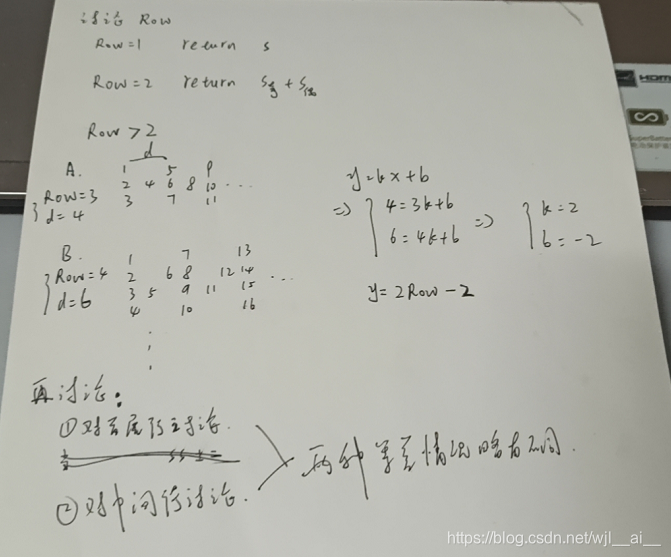 讨论 Row
Row=1 return s
Row=2 return s奇 + s偶
Row>2
d
A. 1 5 9
Row=3 2 4 6 8 10 ...
d=4 3 7 11
y=kx+b
=> { 4=3k+b => { k=2
6=4k+b b=-2
y=2Row-2
B. 1 7 13
Row=4 2 6 8 12 14 ...
d=6 3 5 9 11 15
4 10 16
再讨论:
①对首尾行讨论.
②对中间行讨论.
两种等差情况略有不同.
HDMI
https://blog.csdn.net/wjl__ai__